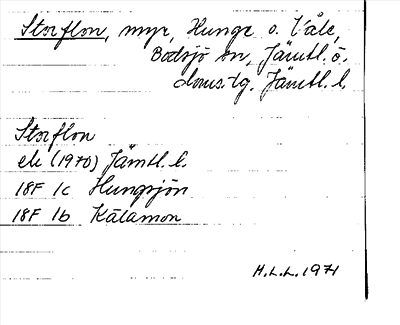 Storflon, myr, Hunge o. Våle,
Bodsjö sn, Jämtl. ö.
doms.lg. Jämtl. l.
Storflon
ek (1970) Jämtl. l.
18F 1c Hungsjön
18F 1b Kälamon
H.L.L. 1971